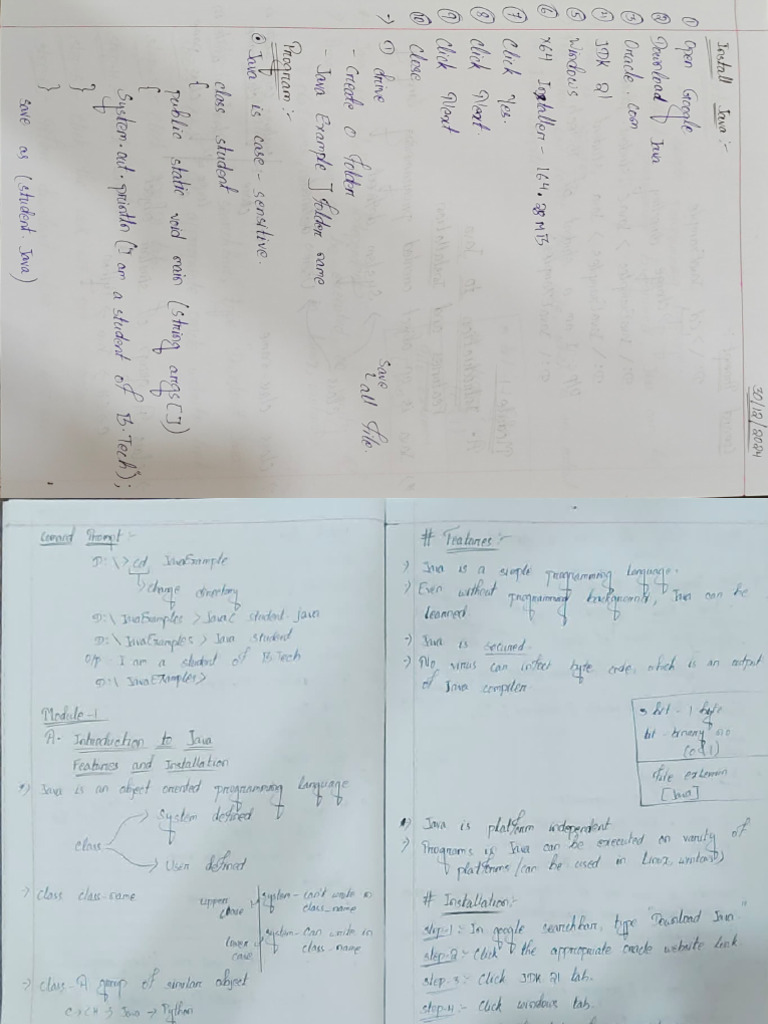 30/12/2024
Install Java :-
① Open Google
② Download Java
③ Oracle.com
④ JDK 21
⑤ Windows
⑥ x64 Installer - 164.28 MB
⑦ Click Yes.
⑧ Click Next.
⑨ Click Next
⑩ Close
→ ① drive
- Create a folder
- Java Example ] folder name
save
all file.
Program :-
Java is case - sensitive.
class student
{
public static void main (string args[])
{
System.out.println ("I am a student of B.Tech");
}
}
save as (student.Java)
Prompt :-
D:\> cd JavaExample
change directory
D:\ JavaExamples > Javac student.java
D:\ JavaExamples > Java student
O/P : I am a student of B.Tech
D:\ JavaExamples>
Module-1
A. Introduction to Java
Features and Installation
Java is an object oriented programming language
System defined
class
User defined
→ class class-name
upper case
system - can't write in
class-name
lower case
system - can write in
class-name
→ class - A group of similar object
Java → Python
# Features :-
→ Java is a simple programming language.
→ Even without programming background, Java can be
learned.
→ Java is secured.
→ No virus can infect byte code, which is an output
of Java compiler.
bit - 1 byte
bit - binary
(0 & 1)
file extension
[Java]
→ Java is platform independent
→ Programs in Java can be executed on variety of
platforms (can be used in Linux,
# Installation :-
step-1 :- In google searchbar, type "Download Java"
step-2 :- Click the appropriate oracle website link.
step-3 :- Click JDK 21 tab.
step-4 :- Click windows tab.